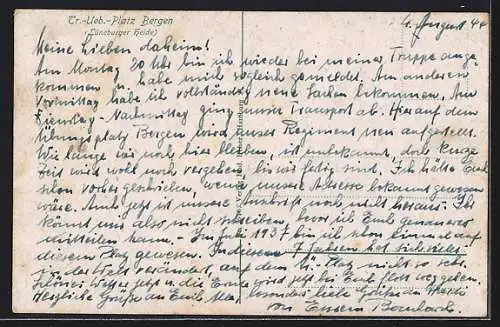 Tr.-Ueb.-Platz Bergen
(Lüneburger Heide)
4. August 44
Meine Lieben daheim!
Am Montag 20 Uhr bin ich wieder bei meiner Truppe ange-
kommen u. habe mich sogleich gemeldet. Am anderen
Vormittag habe ich vollständig neue Sachen bekommen. Am
Dienstag-Nachmittag ging unser Transport ab. Hier auf dem
Übungsplatz Bergen wird unser Regiment neu aufgestellt.
Wie lange wir noch hier bleiben, ist unbekannt, doch einige
Zeit wird wohl noch vergehen bis wir fertig sind. Ich hätte Euch
schon vorher geschrieben, wenn unsere Adresse bekannt gewesen
wäre. Auch jetzt ist unsere Anschrift noch nicht heraus. Ihr
könnt uns also nicht schreiben bevor ich Euch genaueres
mitteilen kann. - Im Juli 1937 bin ich schon einmal auf
diesem Platz gewesen. In diesen 7 Jahren hat sich vieles
in der Welt verändert, auf dem Ü.-Platz nicht so sehr.
Schönes Wetter jetzt u. die Ernte wird jetzt bei Euch
Herzliche Grüße an Euch alle, besonders liebe Grüße an
von Eurem Bernhard.